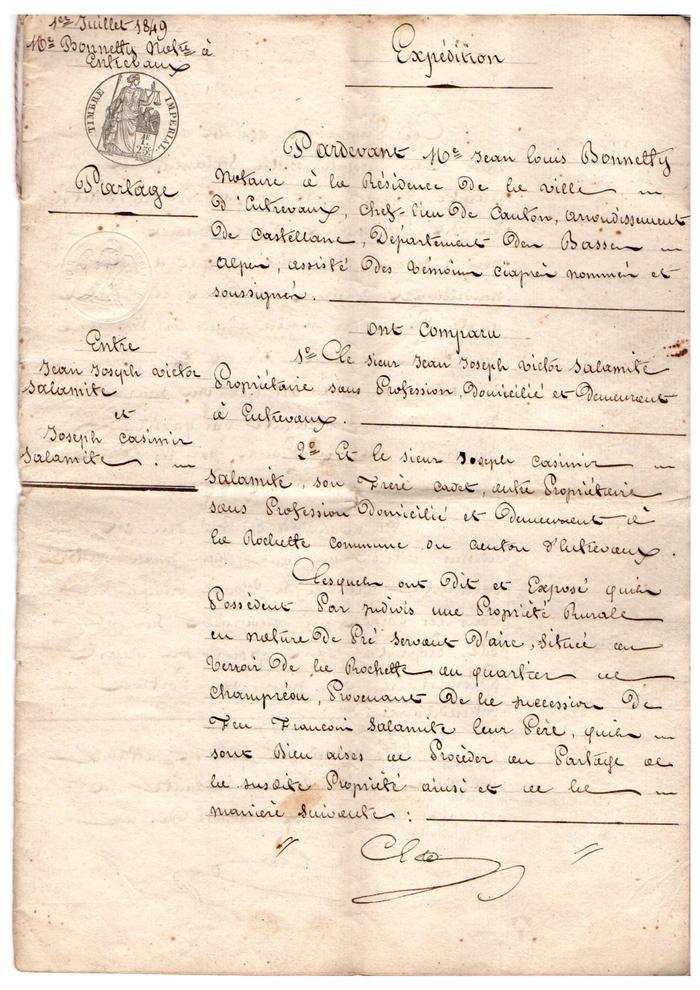 1er Juillet 1849
Me Bonnetty Notre à
Entrevaux
TIMBRE IMPERIAL
Partage
Entre
Jean Joseph Victor
Salamite
et
Joseph Casimir
Salamite.
Expédition
Pardevant Me Jean Louis Bonnetty
Notaire à la Résidence De la ville
D'Entrevaux, Chef-lieu De Canton, arrondissement
De Castellane, Département Des Basses
Alpes, assisté Des témoins ciaprès nommés et
soussignés.
Ont Comparu
1o Le sieur Jean Joseph Victor Salamite
Propriétaire sans Profession, Domicilié et Demeurant
à Entrevaux.
2o Et le sieur Joseph Casimir
Salamite, son Frère cadet, autre Propriétaire
sans Profession Domicilié et Demeurant à
la Rochette commune du Canton d'Entrevaux.
Lesquels ont Dit et Exposé quils
Possèdent Par indivis une Propriété Rurale
en nature De Pré servant D'aire, située au
terroir De la Rochette au quartier de
Champréou, Provenant De la succession De
Feu François Salamite leur Père, quils
sont Bien aises de Procéder au Partage de
la susdite Propriété ainsi et de la
manière suivante :